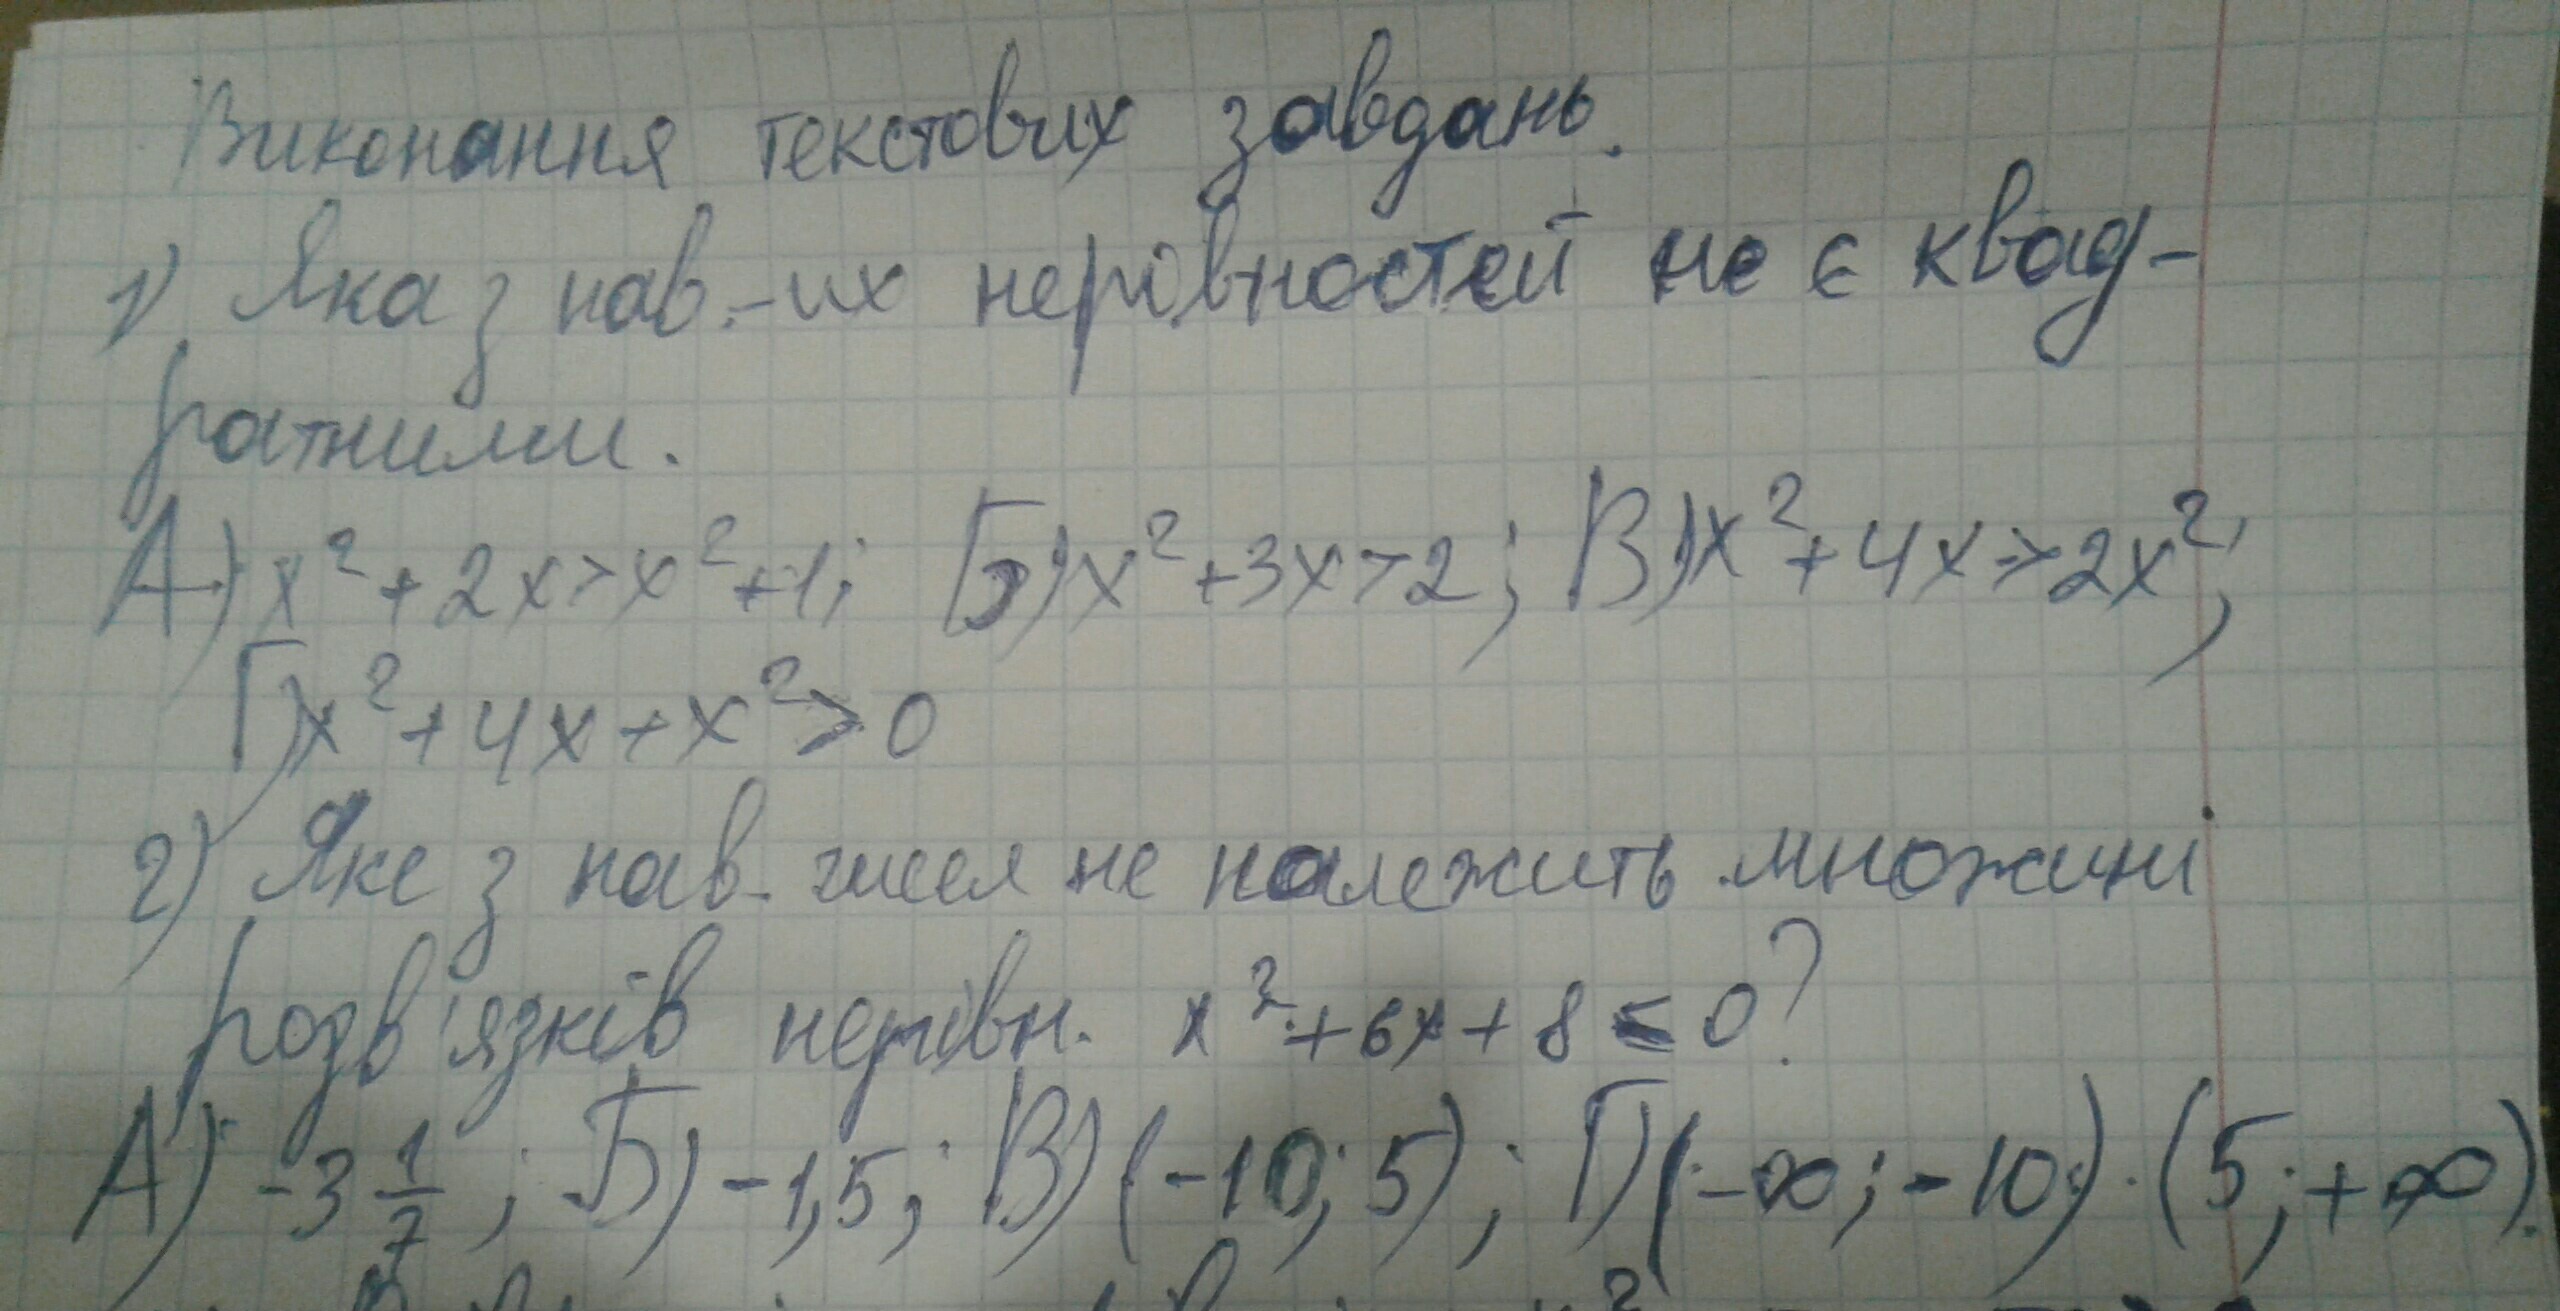 Виконання текстових завдань.
1) Яка з нав.-их нерівностей не є квад-
ратними.
А) x²+2x>x²+1; Б) x²+3x>2; В) x²+4x>2x²;
Г) x²+4x+x²>0
2) Яке з нав. чисел не належить множині
розв'язків нерівн. x²+6x+8≤0?
А) -3 1/7; Б) -1,5; В) (-10; 5); Г) (-∞; -10) · (5; +∞).